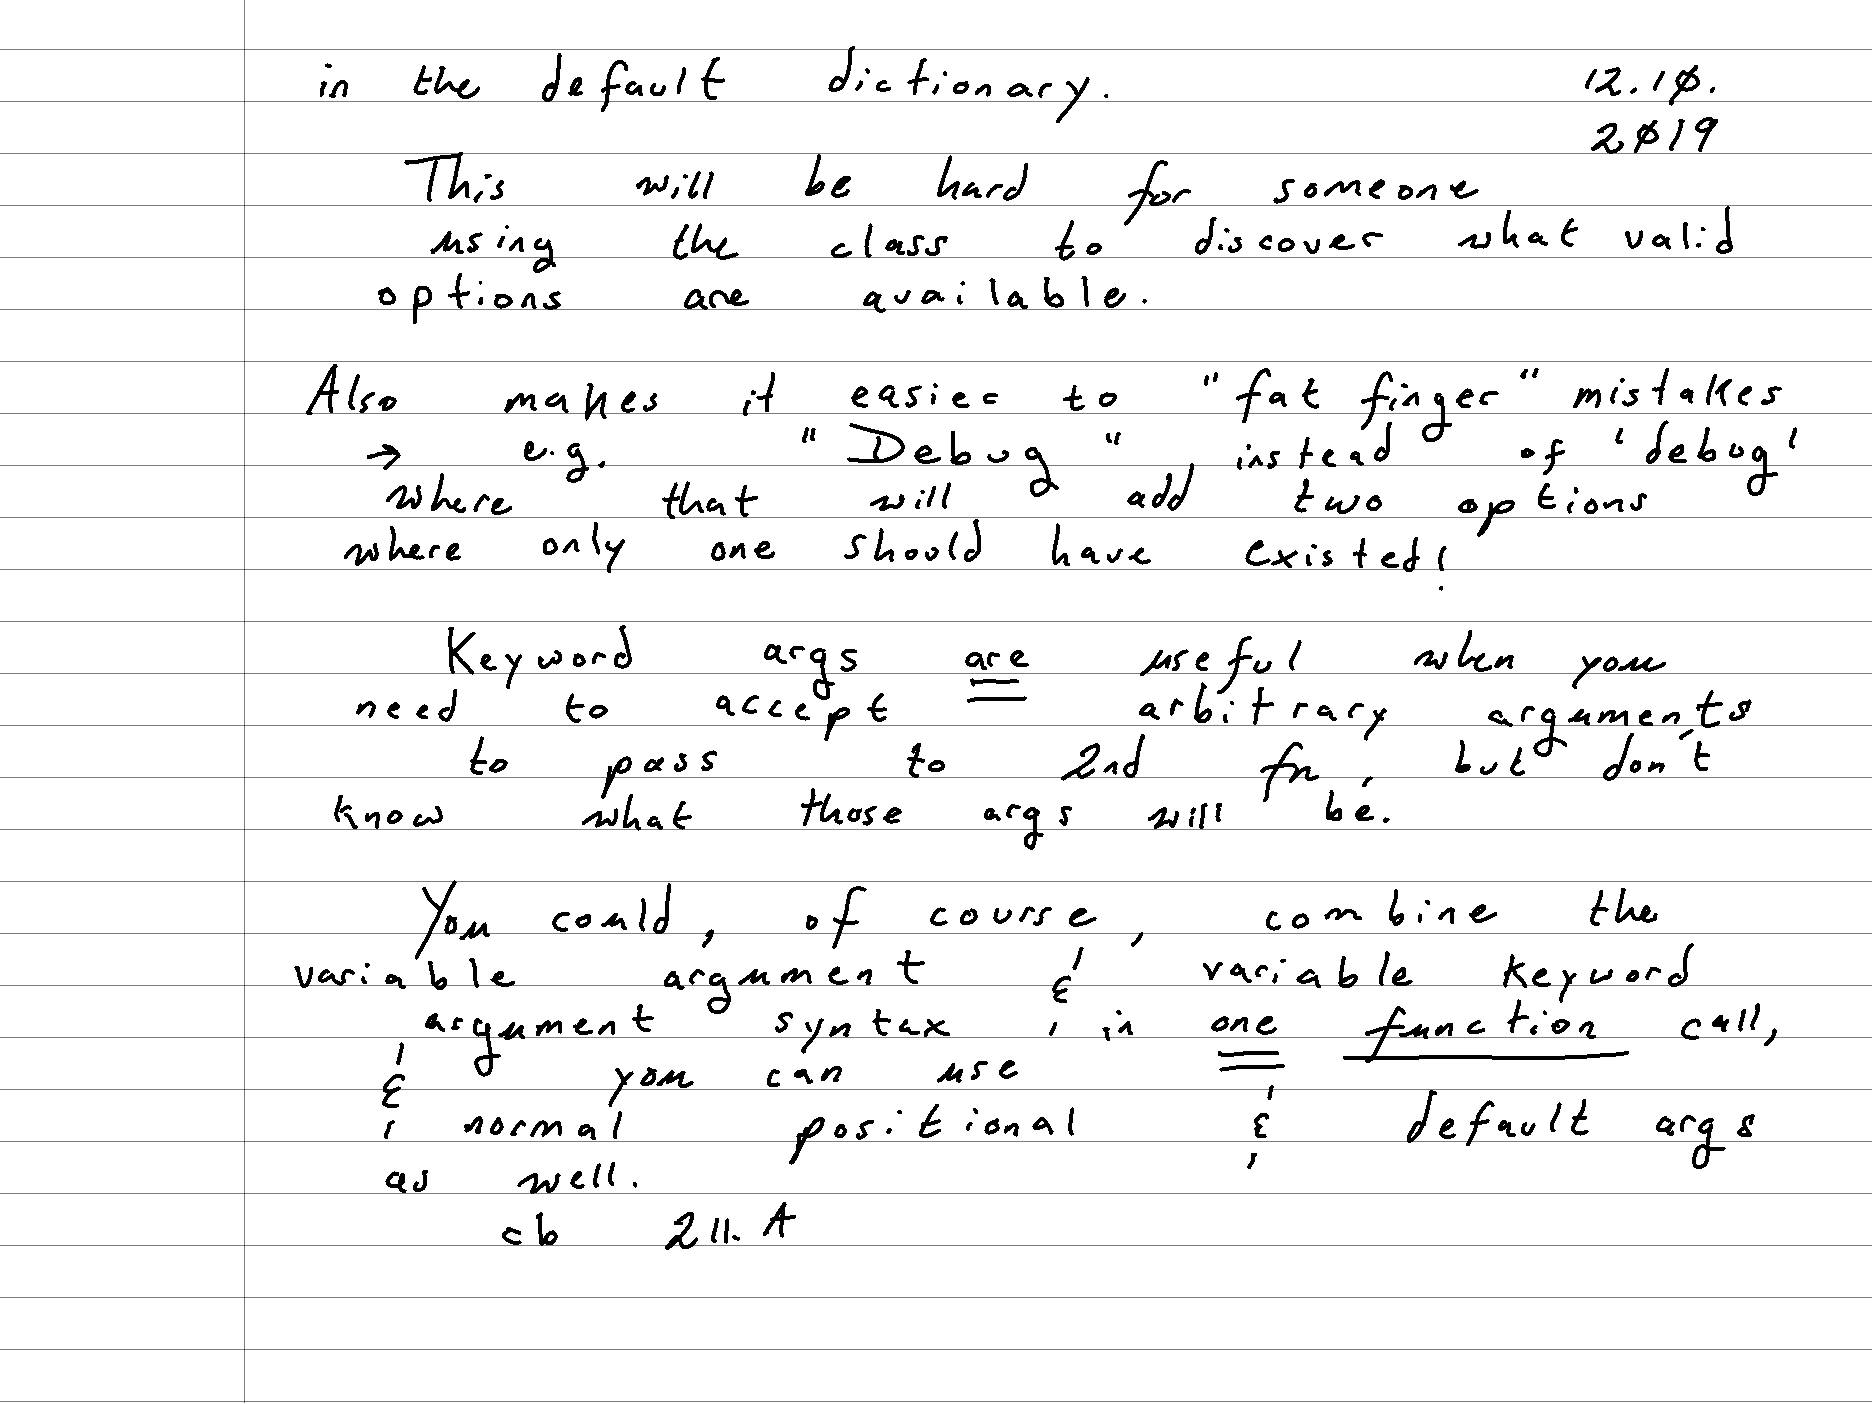 in the default dictionary. 12.10.
2019
This will be hard for someone
using the class to discover what valid
options are available.
Also makes it easier to "fat finger" mistakes
→ e.g. "Debug" instead of 'debug'
where that will add two options
where only one should have existed!
Keyword args are useful when you
need to accept arbitrary arguments
to pass to 2nd fn, but don't
know what those args will be.
You could, of course, combine the
variable argument & variable keyword
argument syntax in one function call,
& you can use
normal positional & default args
as well.
cb 211. A